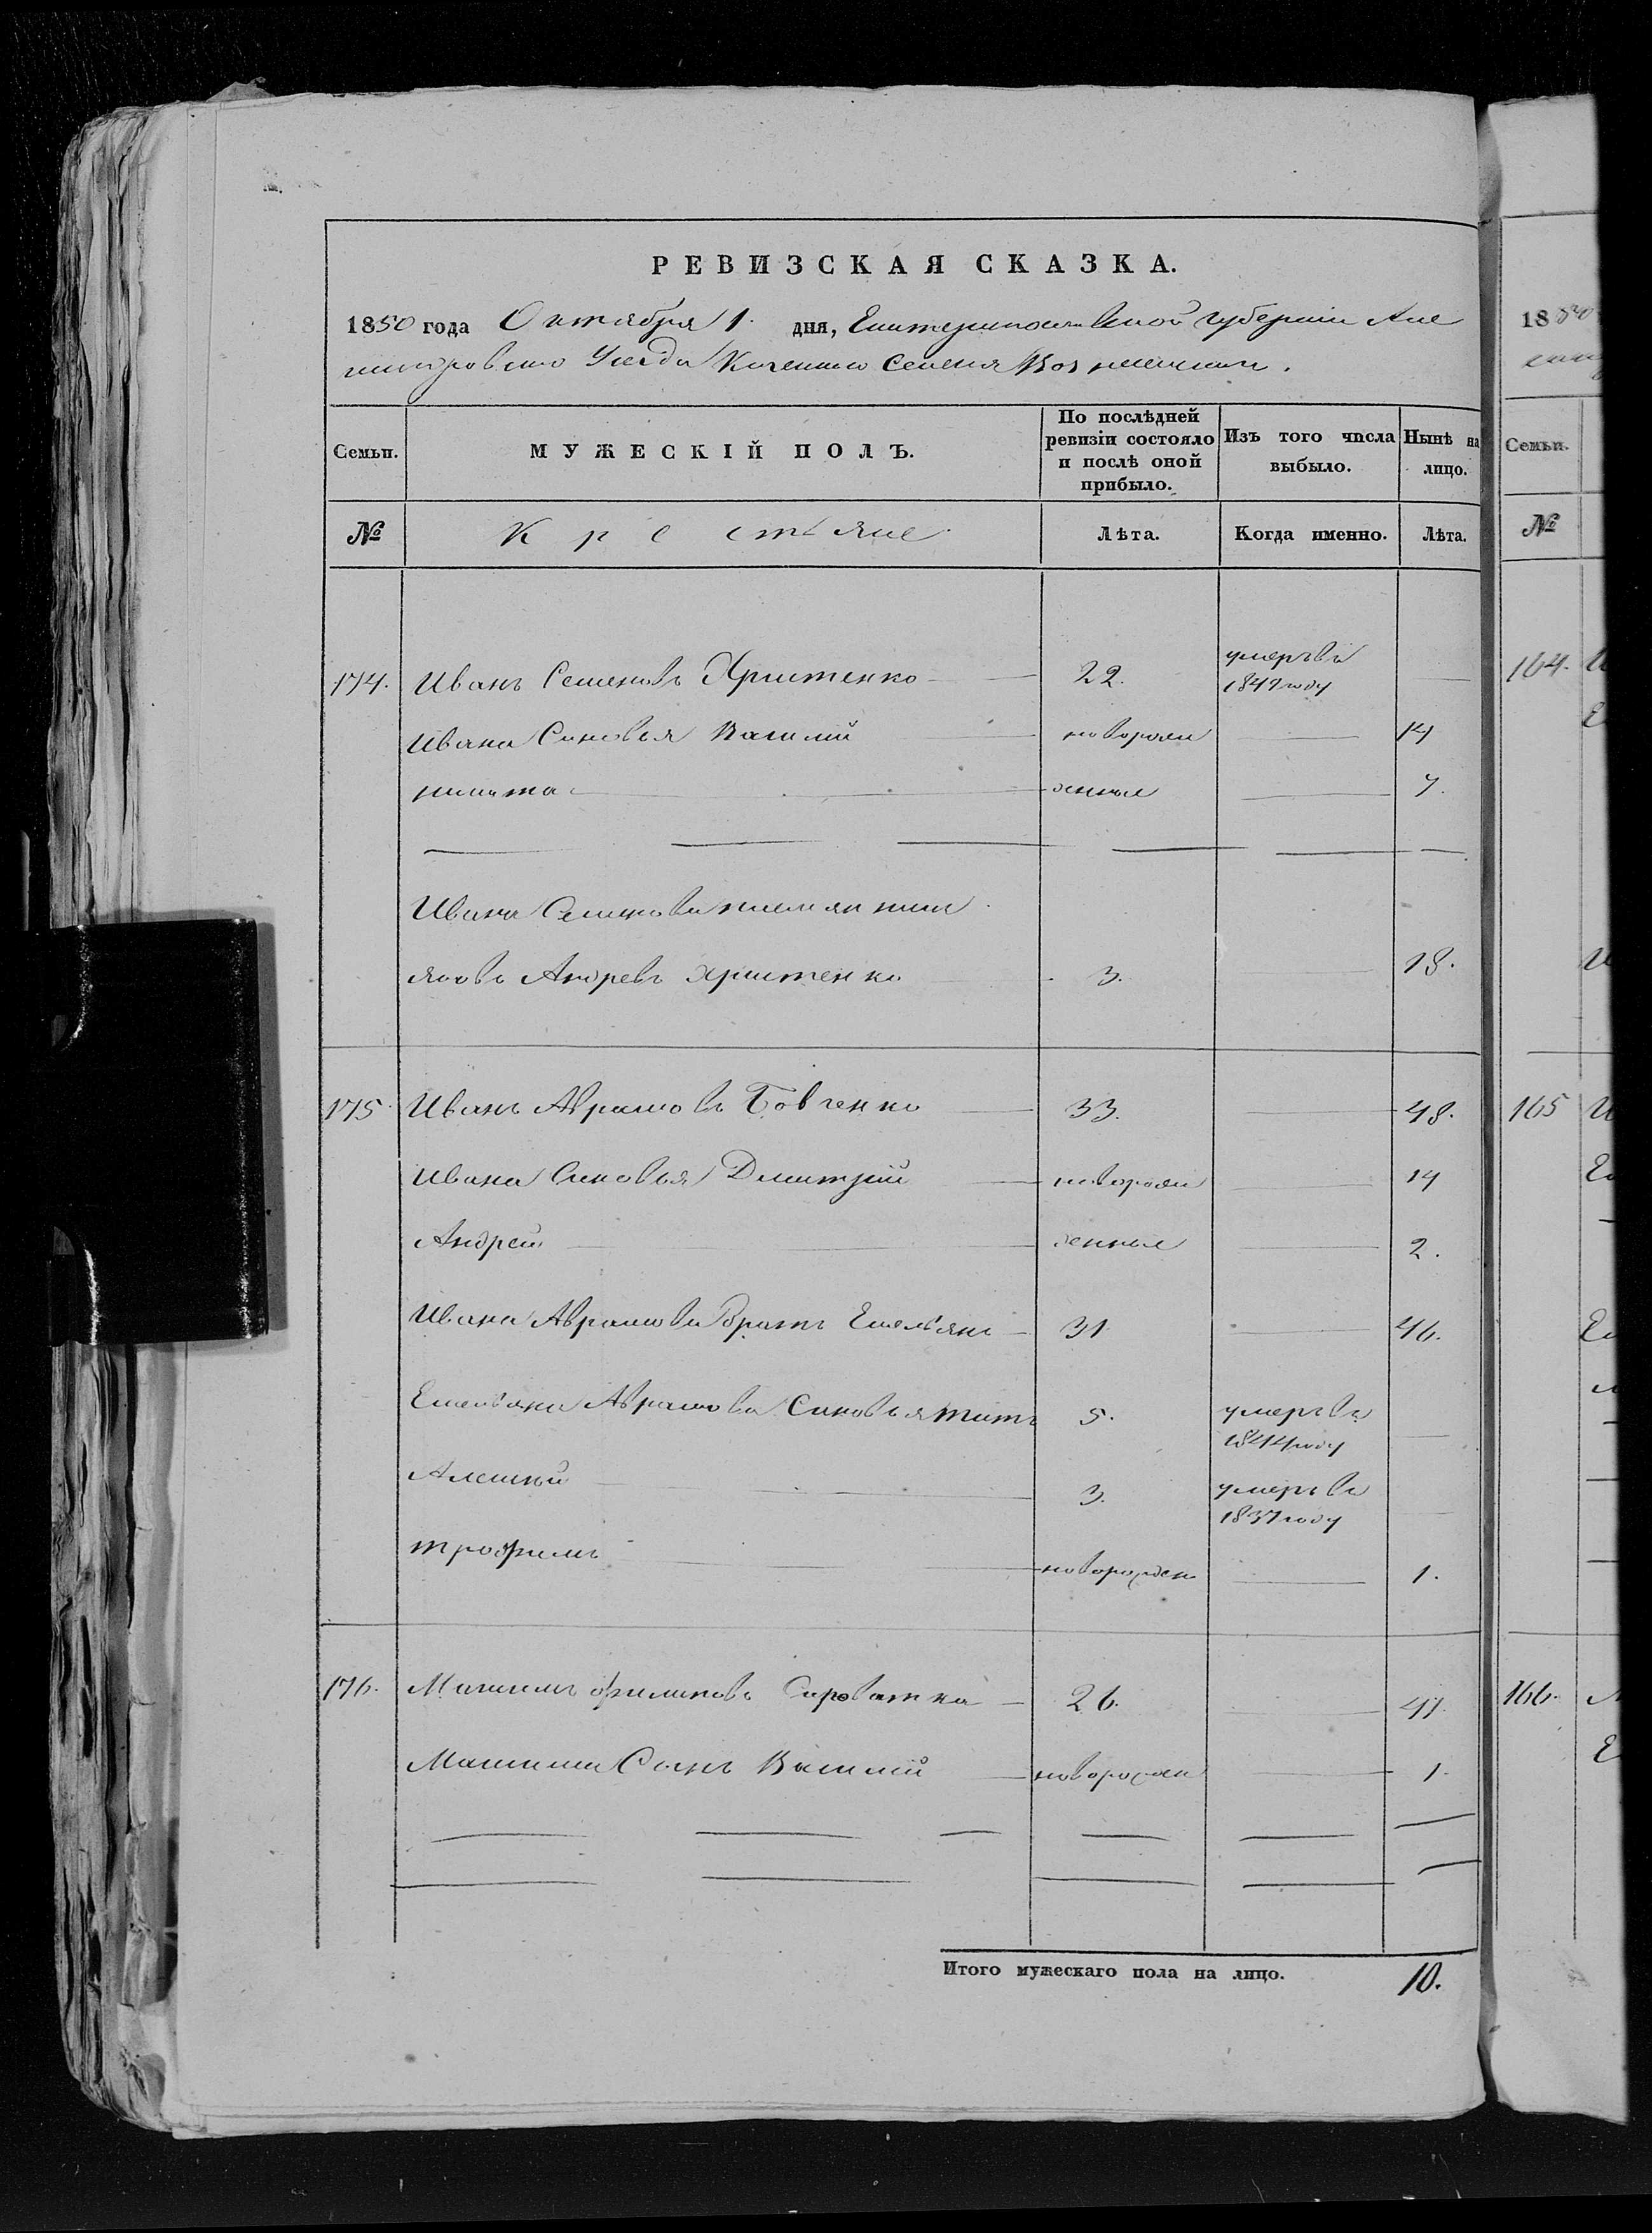 РЕВИЗСКАЯ СКАЗКА.
1850 года Октября 1. дня, Екатеринославской Губернии Але
ксандровского Уезда Казенного Селения Вознесенки.
Семьи.
МУЖЕСКІЙ ПОЛЪ.
По послѣдней ревизіи состояло и послѣ оной прибыло.
Изъ того числа выбыло.
Нынѣ на лицо.
№ Крестьяне Лѣта. Когда именно. Лѣта.
174. Иванъ Семеновъ Христенко 22. умеръ въ 1847 году
Ивана Сыновья Василий новорож 14
никита денные 7.
Ивана Семенова племянник
яковъ Андреевъ Христенко 3. 18.
175. Иванъ Аврамовъ Бовченко 33. 48.
Ивана Сыновья Дмитрий новорож 14
Андрей денные 2.
Ивана Аврамова Братъ Емельянъ 31 46.
Емельяна Аврамова Сыновья титъ 5. умеръ въ 1844 году
Алексѣй 3. умеръ въ 1837 году
трофимъ новорожден 1.
176. Максимъ Филиповъ Сыроватка 26. 41.
Максима Сынъ Василий новорожден 1.
Итого мужескаго пола на лицо. 10.
18
Семьи.
№
164.
165
166.